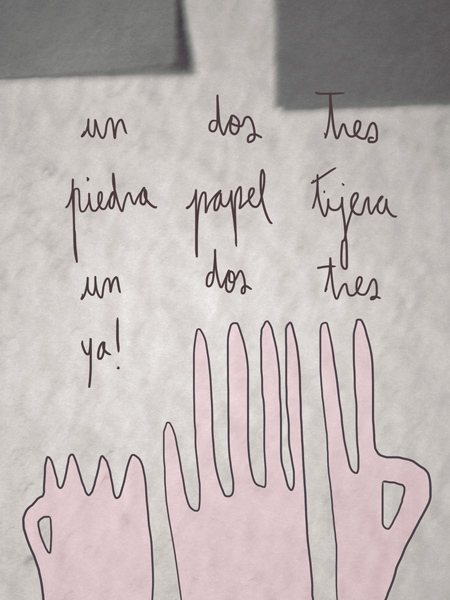 un dos tres
piedra papel tijera
un dos tres
ya!